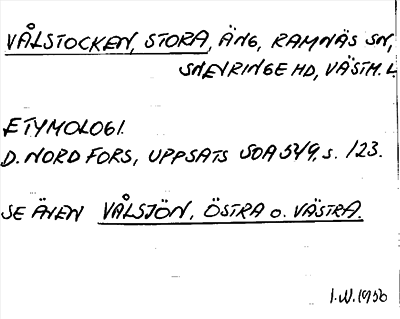 VÅLSTOCKEN, STORA, ÄNG, RAMNÄS SN,
SNEVRINGE HD, VÄSTM. L.
ETYMOLOGI.
D. NORDFORS, UPPSATS SOA 549, s. 123.
SE ÄVEN VÅLSJÖN, ÖSTRA o. VÄSTRA.
I.W. 1956